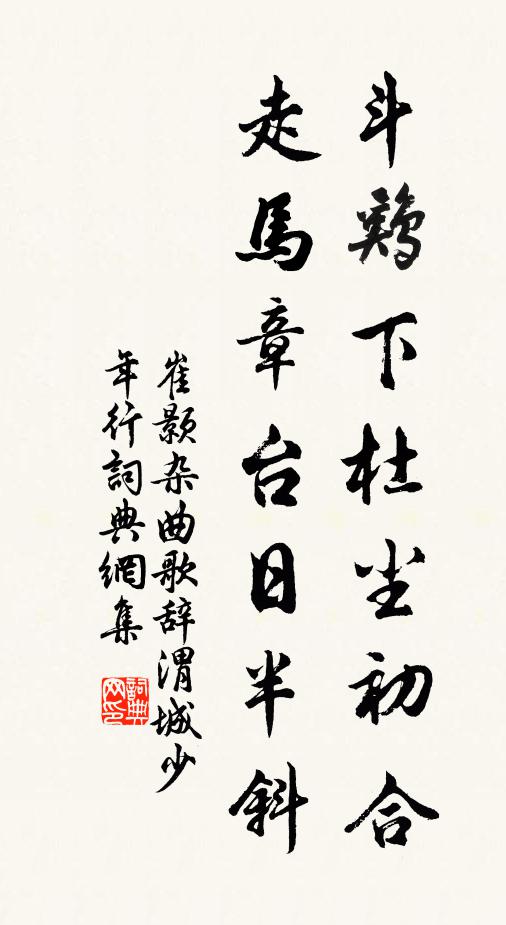 斗鷄下杜尘初合
走馬章台日半斜
崔颢杂曲歌辞渭城少
年行詞典網集
詞典
网印